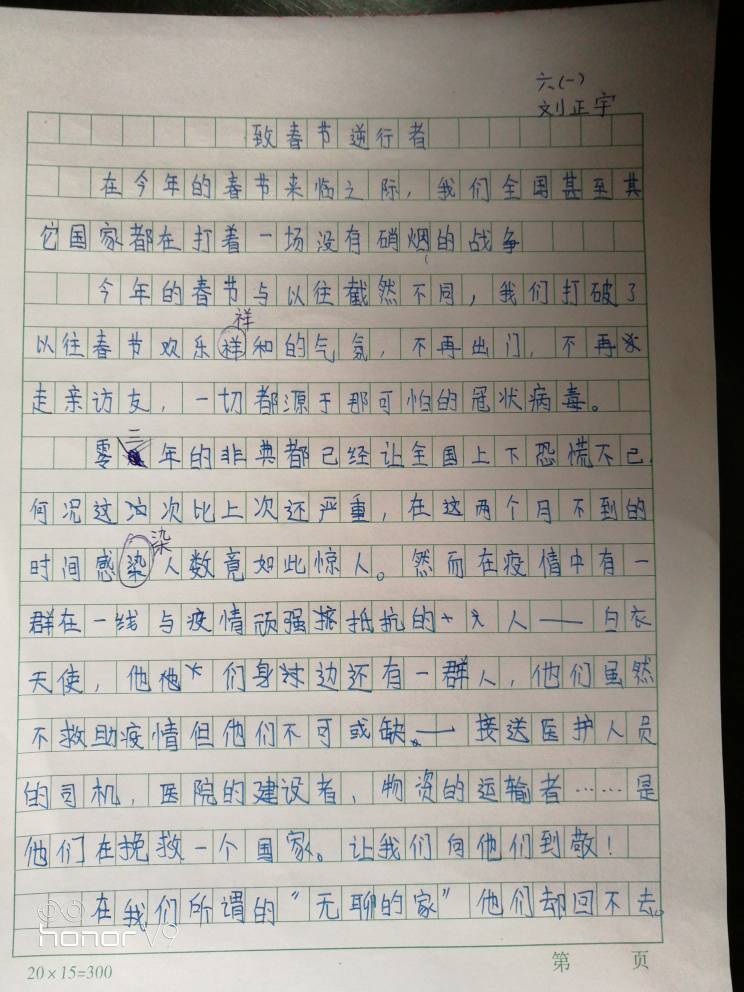 六(一)
刘正宇
致春节逆行者
在今年的春节来临之际，我们全国甚至其
它国家都在打着一场没有硝烟的战争
今年的春节与以往截然不同，我们打破了
祥
以往春节欢乐祥和的气氛，不再出门，不再
走亲访友，一切都源于那可怕的冠状病毒。
二
零年的非典都已经让全国上下恐慌不已
何况这次比上次还严重，在这两个月不到的
染
时间感染人数竟如此惊人。然而在疫情中有一
群在一线与疫情顽强抵抗的人——白衣
天使，他们身边还有一群人，他们虽然
不救助疫情但他们不可或缺——接送医护人员
的司机，医院的建设者、物资的运输者……是
他们在挽救一个国家。让我们向他们到敬！
在我们所谓的“无聊的家”他们却回不去。
honor V9
20×15=300
第 页